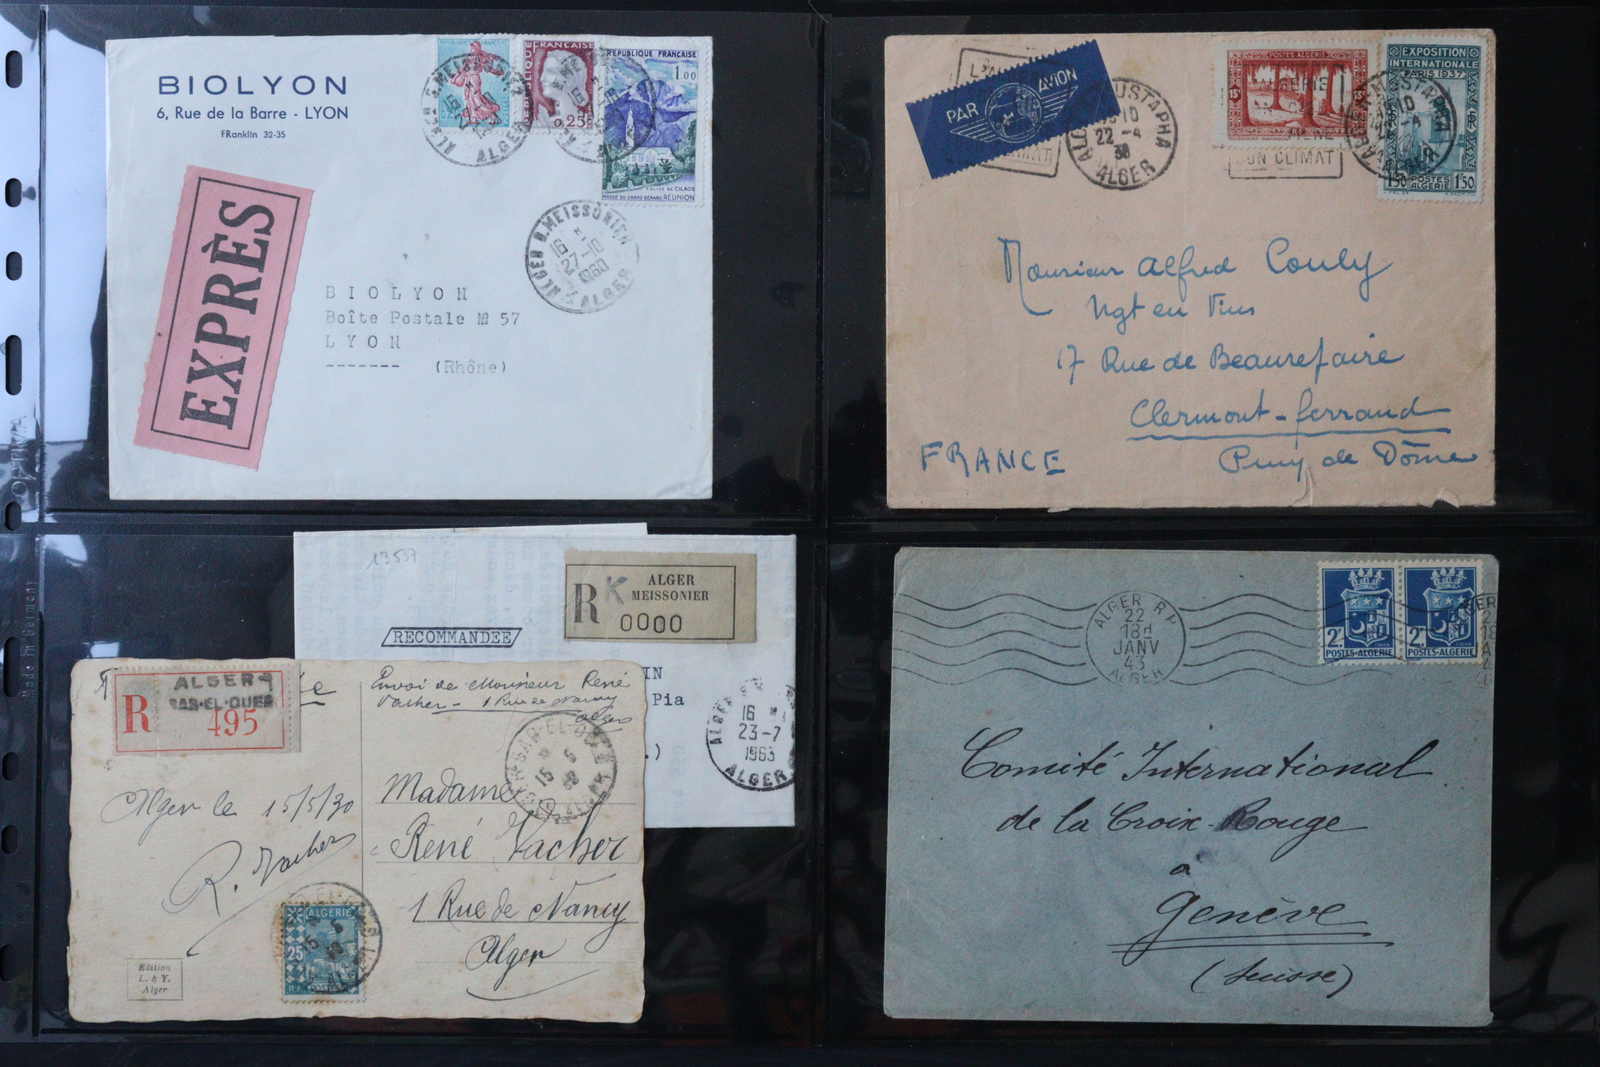 BIOLYON
6, Rue de la Barre - LYON
FRanklin 32-35
EXPRÈS
RÉPUBLIQUE FRANÇAISE
1.00
0,25F
CIRQUE DE CILAOS
RÉUNION
ALGER
ALGER R. MEISSONIER
16
27-10
1960
ALGER
BIOLYON
Boîte Postale № 57
LYON
------- (Rhône)
PAR AVION
POSTES ALGERIE
15c
EXPOSITION
INTERNATIONALE
PARIS 1937
1F50 POSTES 1F50
ALGERIE
ALGER-MUSTAPHA
22 -4
38
ALGER
SON CLIMAT
Monsieur Alfred Couly
Ngt en Vins
17 Rue de Beaurefaire
Clermont-ferrand
FRANCE Puy de Dôme
13537
R K
ALGER
MEISSONIER
0000
RECOMMANDEE
IN
Pia
.)
16
23-7
1963
ALGER
ALGER
BAB-EL-OUED
R 495
Envoi de Monsieur René
Vacher - 1 Rue de Nancy
Alger
Alger le 15/5/30
R. Vacher
Madame
René Vacher
1 Rue de Nancy
Alger
BAB-EL-OUED
15 5
ALGERIE
25
Edition
L. & Y.
Alger
ALGER R.P.
22
18H
JANV
43
ALGER
2F 2F
POSTES-ALGERIE POSTES-ALGERIE
Comité International
de la Croix-Rouge
à
Genève
(Suisse)